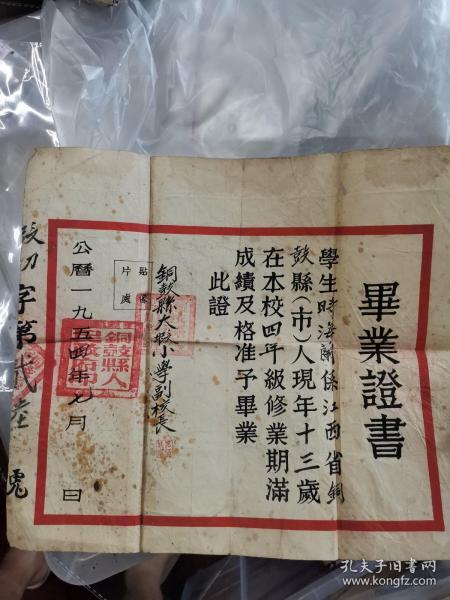 畢業證書
學生時海蘭係江西省銅
鼓縣(市)人現年十三歲
在本校四年級修業期滿
成績及格准予畢業
此證
銅鼓縣大塅小學副校長
貼
片處
公曆一九五四年七月
日
字第
號
孔夫子旧书网
www.kongfz.com